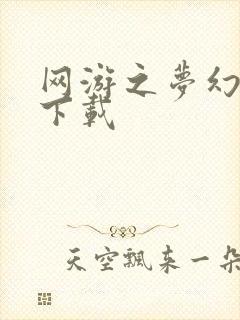 网游之夢幻
下載
天空飄来一朵